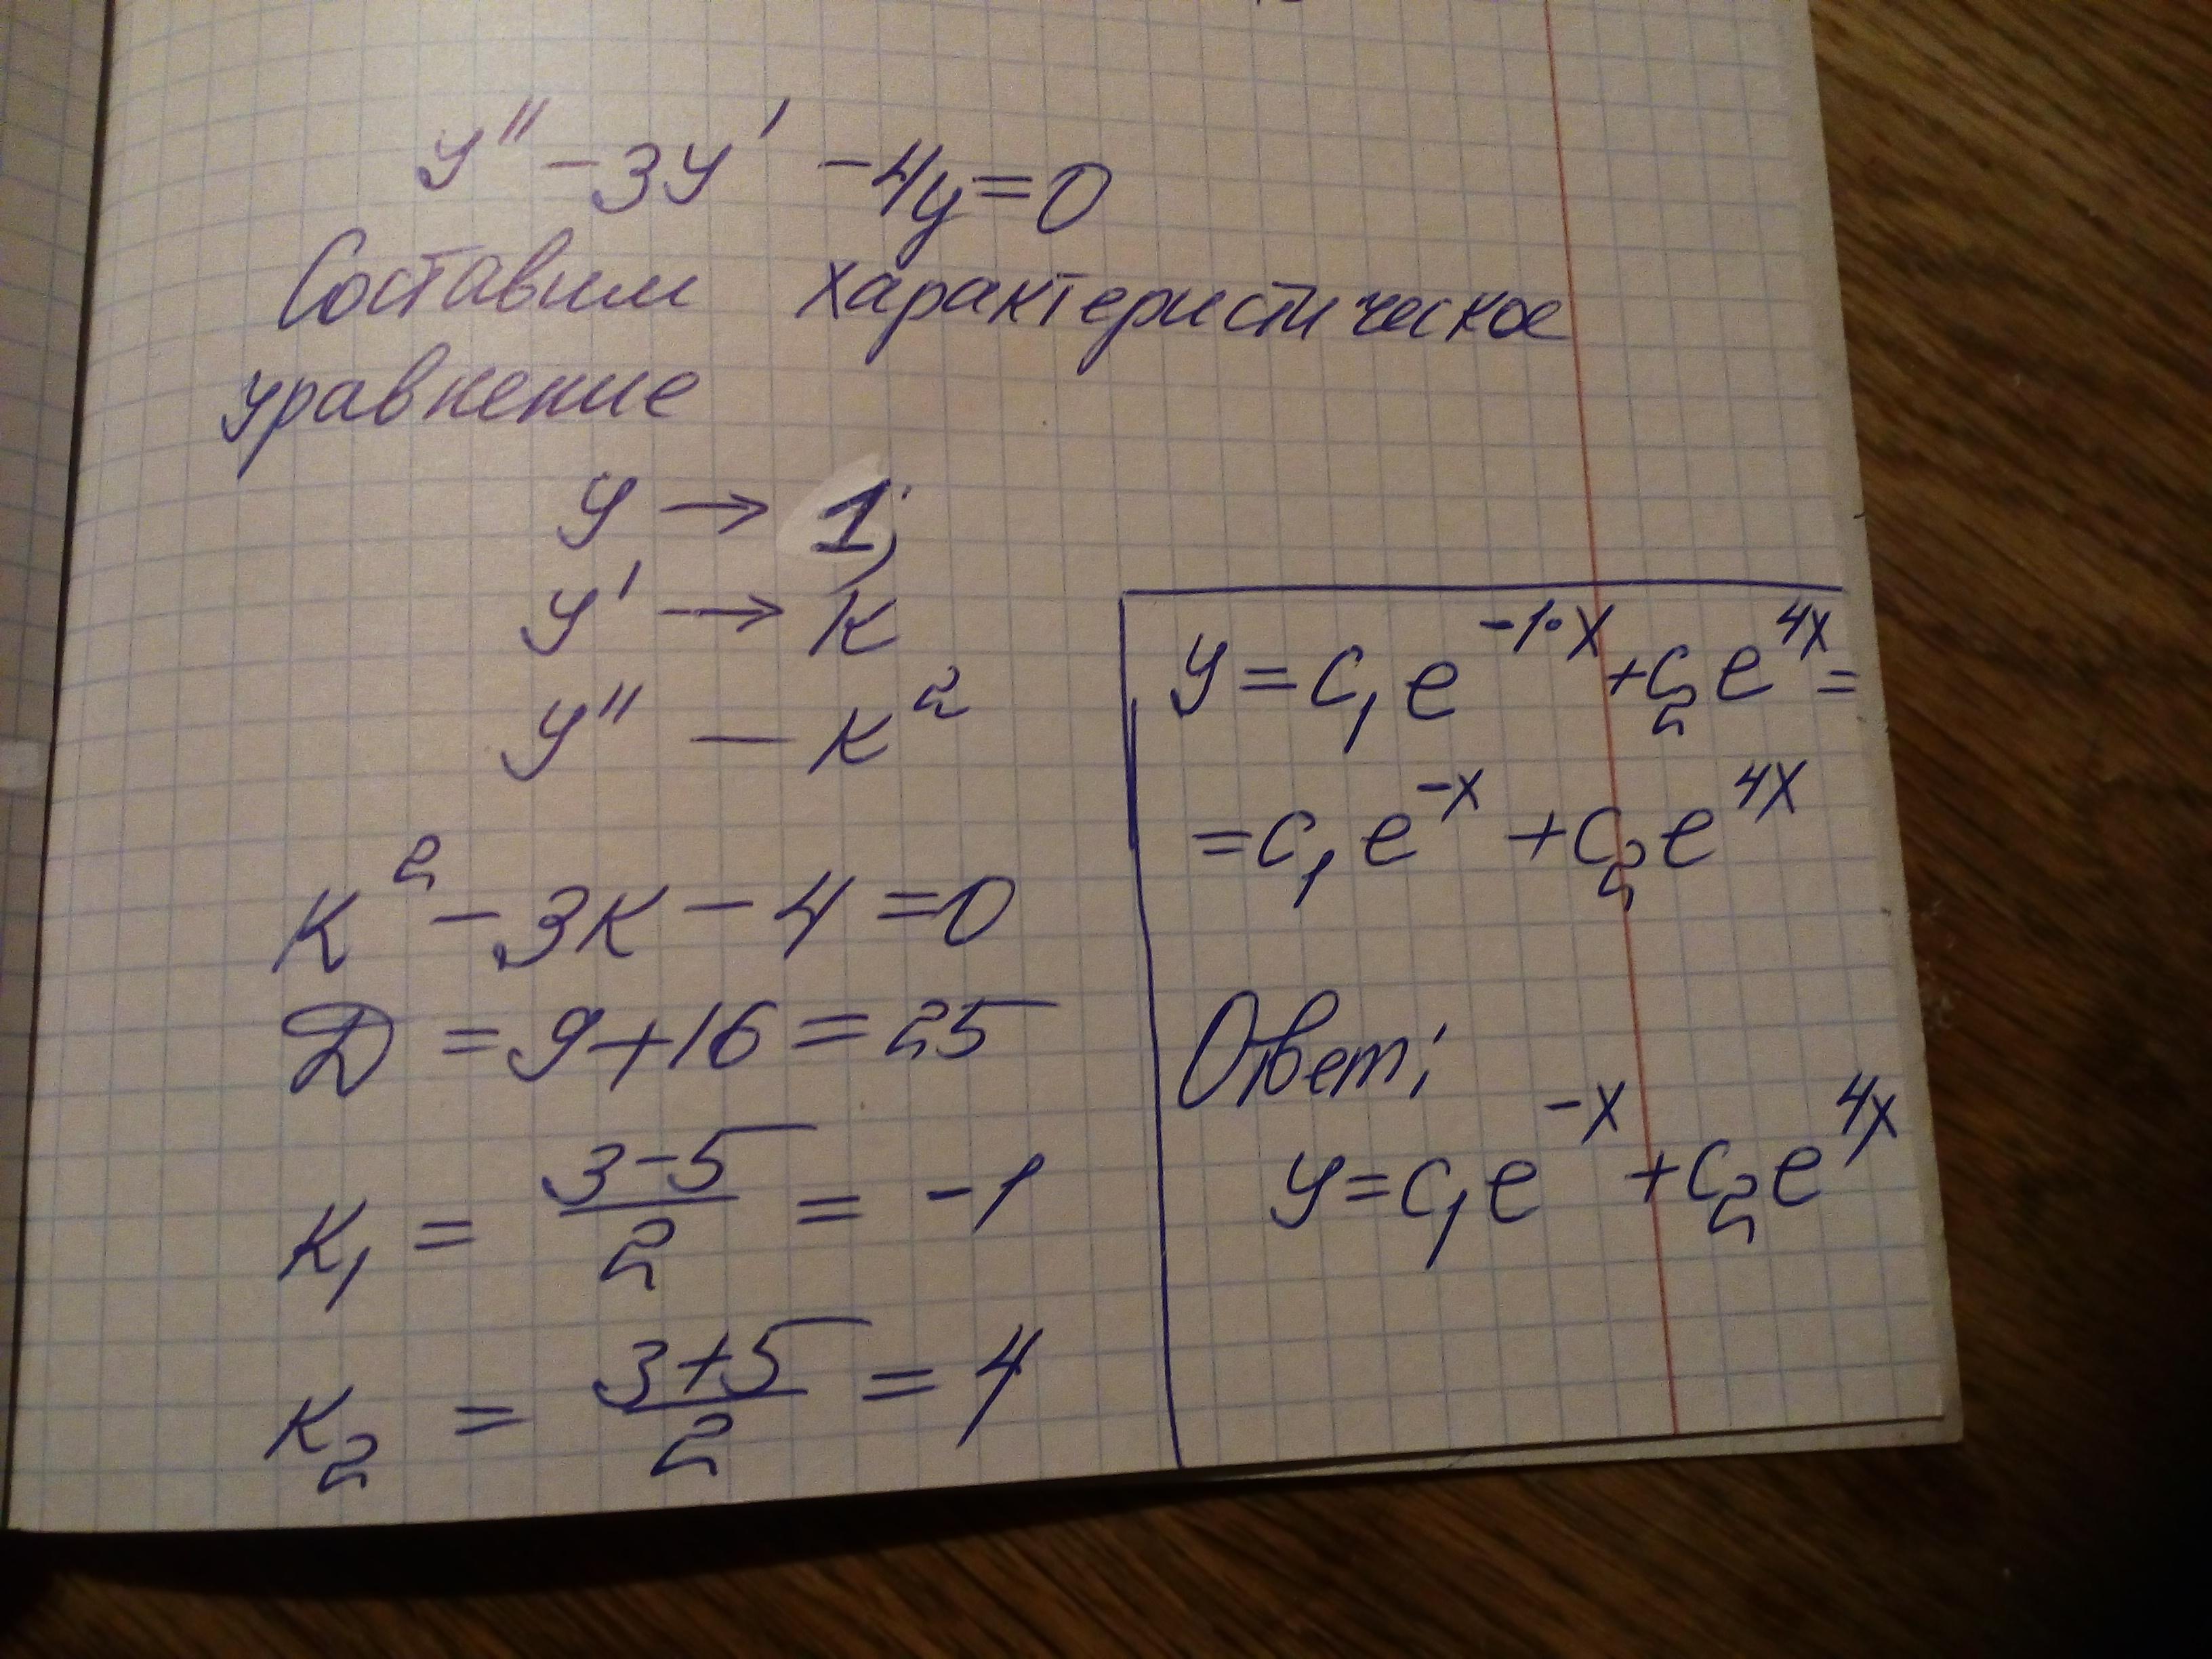 y'' - 3y' - 4y = 0
Составим характеристическое
уравнение
y → 1;
y' → k
y'' — k²
k² - 3k - 4 = 0
D = 9 + 16 = 25
k₁ = (3-5)/2 = -1
k₂ = (3+5)/2 = 4
y = c₁e^(-1·x) + c₂e^(4x) =
= c₁e^(-x) + c₂e^(4x)
Ответ:
y = c₁e^(-x) + c₂e^(4x)